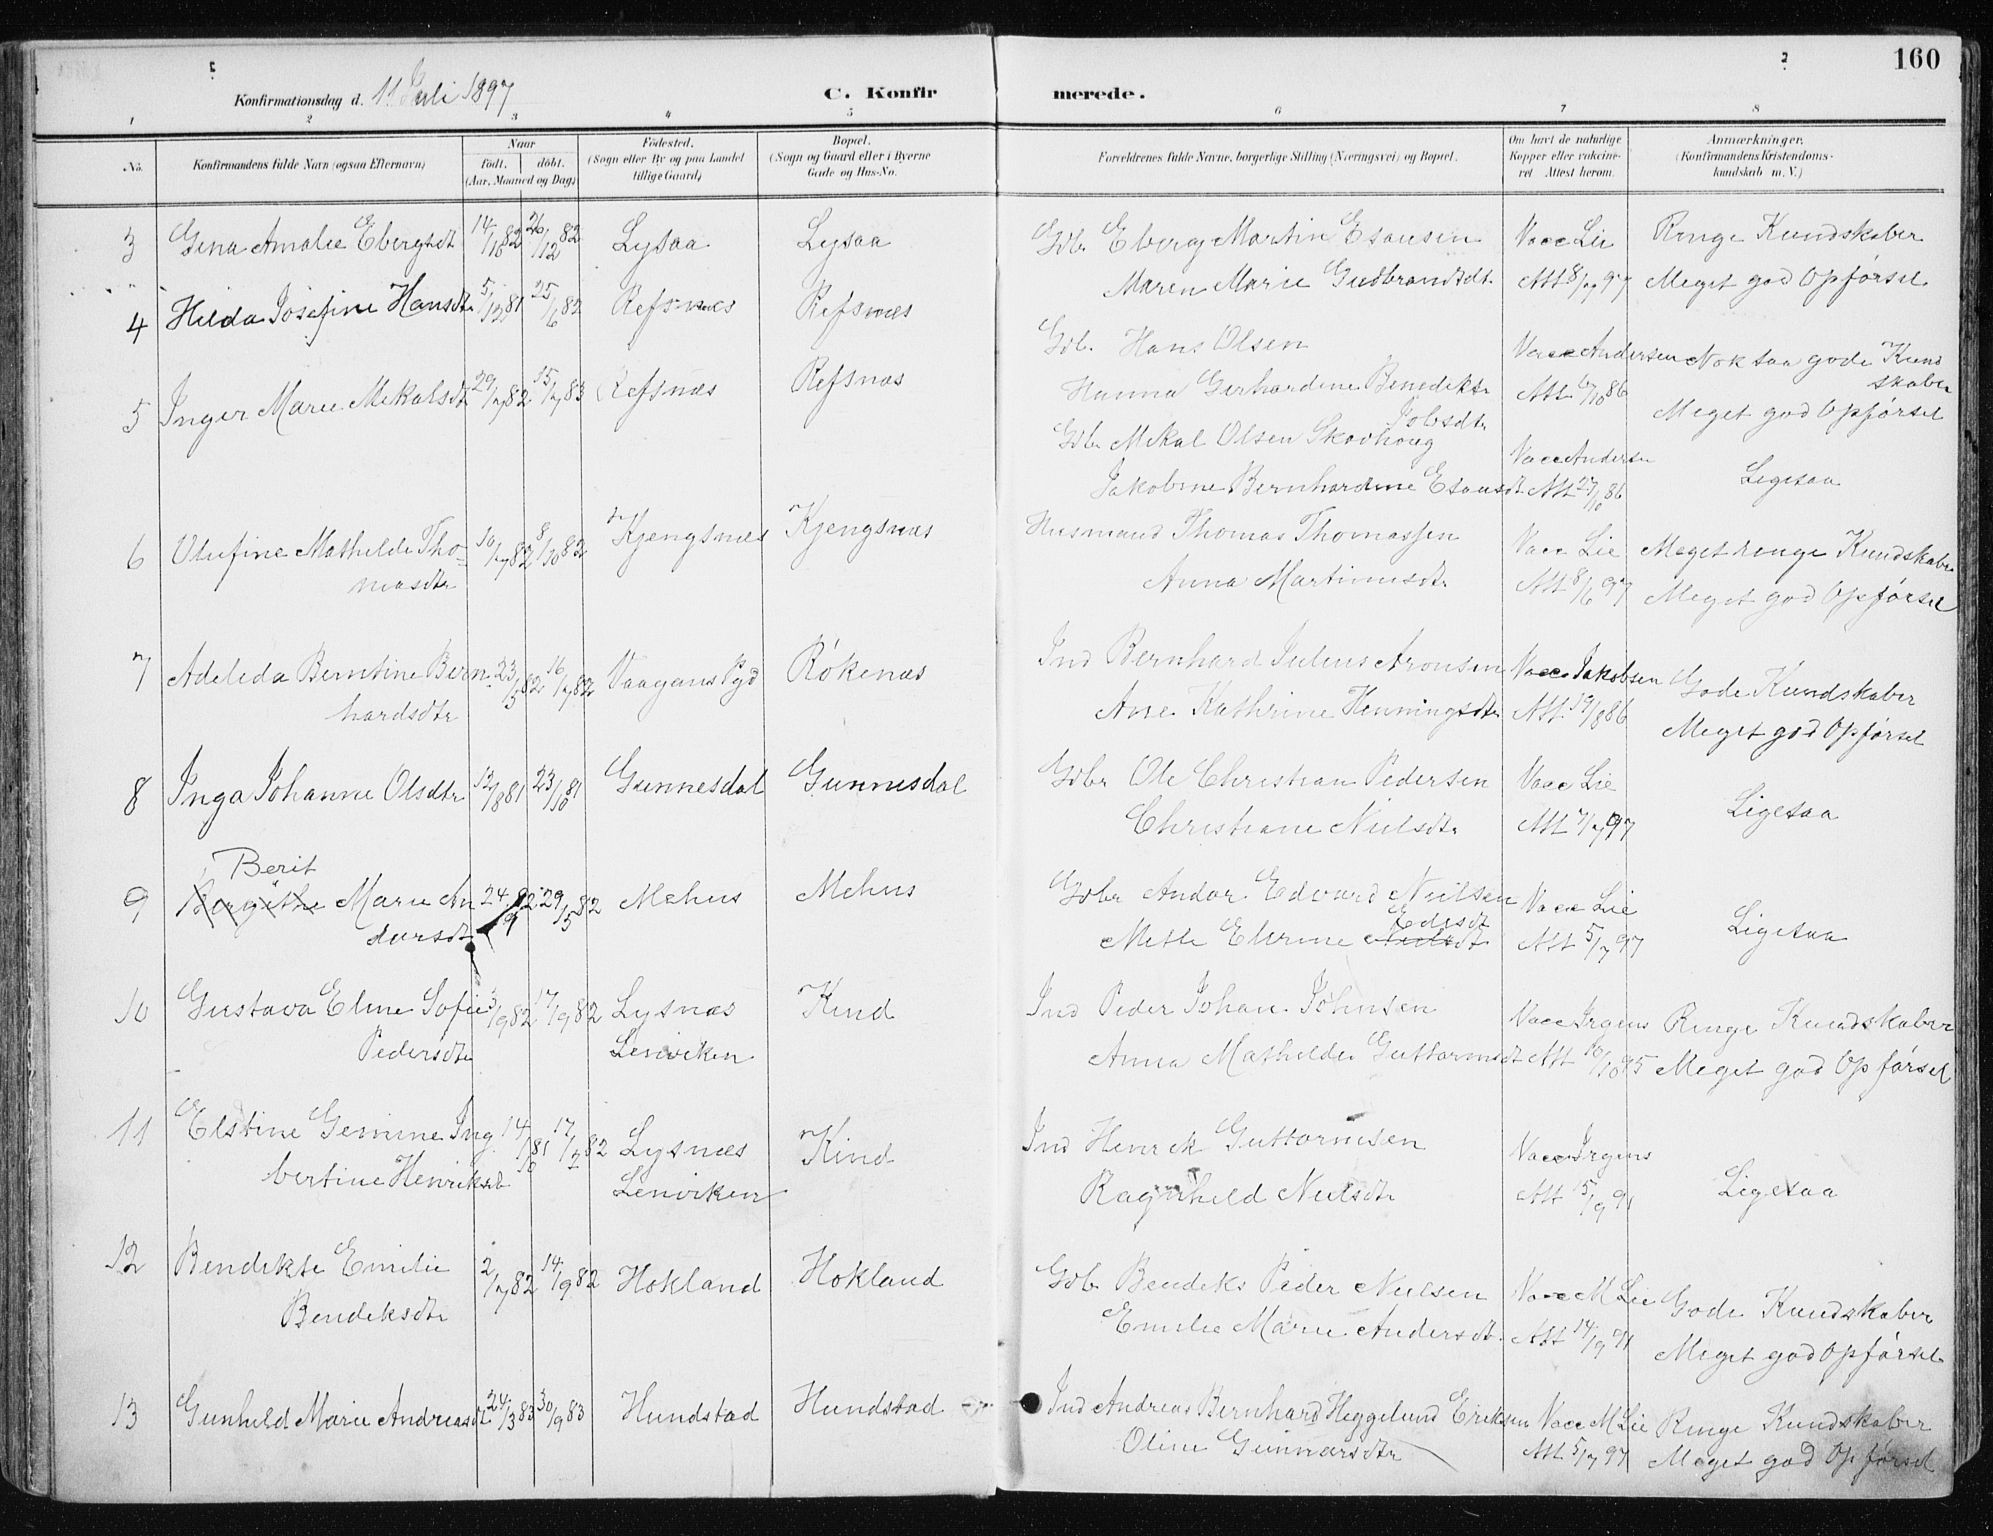 160
Konfirmationsdag d. 11 Juli 1897 C. Konfirmerede.
1 2 3 4 5 6 7 8
No. Konfirmandens fulde Navn (ogsaa Efternavn) Naar født. døbt. (Aar, Maaned og Dag) Fødested. (Sogn eller By og paa Landet tillige Gaard) Bopæl. (Sogn og Gaard eller i Byerne Gade og Hus-No. Forældrenes fulde Navne, borgerlige Stilling (Næringsvei) og Bopæl. Om havt de naturlige Kopper eller vakcineret. Attest herom. Anmærkninger. (Konfirmandens Kristendomskundskab m. V.)
3 Gina Amalie Ebergsdt 14/10 82 26/12 82 Lysaa Lysaa Gdb. Eberg Martin Esausen Vacc Lie Ringe Kundskaber
Maren Marie Gudbrandsdt. Att 8/7 97 Meget god Opførsel
4 Hilda Josefine Hansdtr 5/12 81 25/6 82 Refsnæs Refsnæs
Gdb. Hans Olsen Vacc Andersen Nok saa gode Kundskaber
Hanna Gerhardine Benedikte Jobsdtr Att 6/10 86 Meget god Opførsel
5 Inger Marie Mikalsdt 29/7 82 15/7 83 Refsnæs Refsnæs
Gdbr Mikal Olsen Skovhoug Vacc Andersen
Jakobine Bernhardine Esausdt Att 27/10 86 Ligesaa
6 Olufine Mathilde Thomasdtr 10/7 82 8/10 82 Kjengsnæs Kjengsnæs Husmand Thomas Thomassen Vacc Lie Meget ringe Kundskaber
Anna Martinusdtr Att 8/6 97 Meget god Opførsel
7 Adelida Berntine Bernhardsdtr 23/5 82 16/7 82 Vaagans Pgd Røkenæs Ind Bernhard Julius Aronsen Vacc Jakobsen Gode Kundskaber
Ane Kathrine Henningsdtr Att. 19/8 86 Meget god Opførsel
8 Inga Johanne Olsdtr 12/8 81 23/10 81 Gunnesdal Gunnesdal Gdbr Ole Christian Pedersen Vacc Lie
Christiane Nielsdtr Att 7/7 97 Ligesaa
Berit
9 Bergithe Marie Andorsdt 24/9 82 29/5 82 Mehus Mehus Gdbr Andor Edvard Nielsen Vacc Lie
Mette Elirine Nielsdt Edisdt Att 5/7 97 Ligesaa
10 Gustava Eline Sofie Pedersdtr 3/9 82 17/9 82 Lysnæs Lenviken Kind Ind Peder Johan Johnsen Vacc Irgens Ringe Kundskaber
Anna Mathilde Guttormsdt Att 16/10 95 Meget god Opførsel
11 Elstine Gemine Ingbertine Henriksdt 14/10 81 17/2 82 Lysnæs Lenviken Kind Ind Henrik Guttormsen Vacc Irgens
Ragnhild Nielsdtr Att 15/9 91 Ligesaa
12 Bendikte Emilie Bendiksdtr 2/7 82 14/9 82 Hokland Hokland Gdb Bendiks Peder Nielsen Vacc M Lie Gode Kundskaber
Emilie Marie Andersdt. Att 14/9 91 Meget god Opførsel
13 Gunhild Marie Andreasdt 24/3 83 30/9 83 Hundstad Hundstad Ind Andreas Bernhard Heggelund Eriksen Vacc M Lie Ringe Kundskaber
Oline Gunnarsdtr Att 5/7 97 Meget god Opførsel